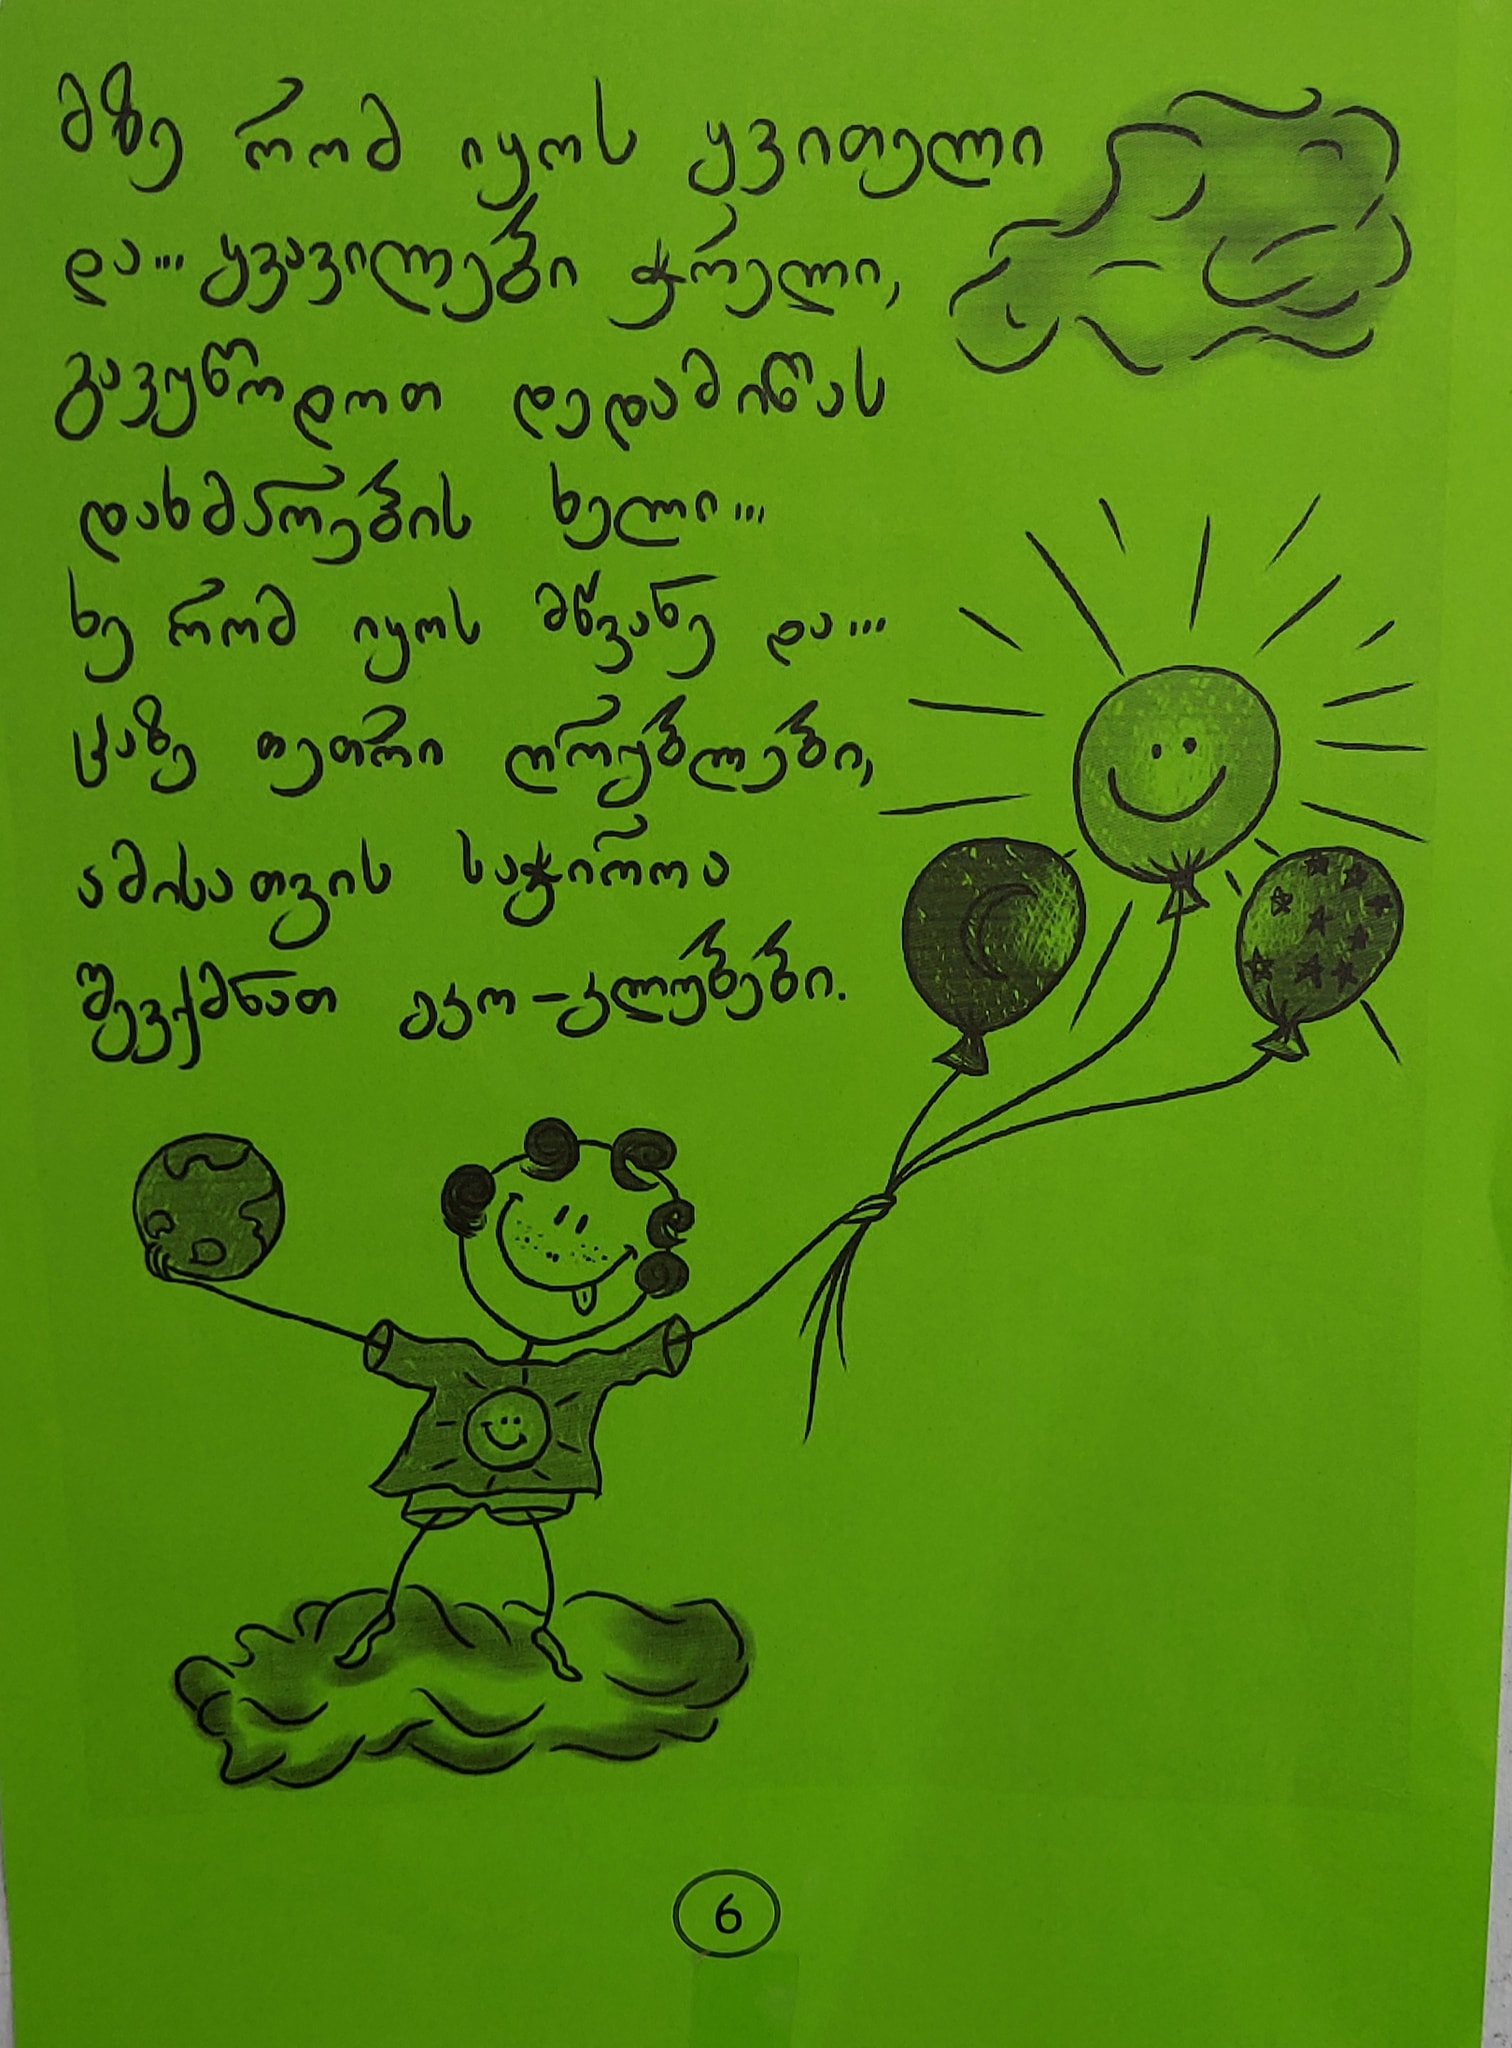 მზე რომ იყოს ყვითელი
და... ყვავილები ჭრელი,
გავუწოდოთ დედამიწას
დახმარების ხელი...
ხე რომ იყოს მწვანე და...
ცაზე თეთრი ღრუბლები,
ამისათვის საჭიროა
შევქმნათ ეკო-კლუბები.
6